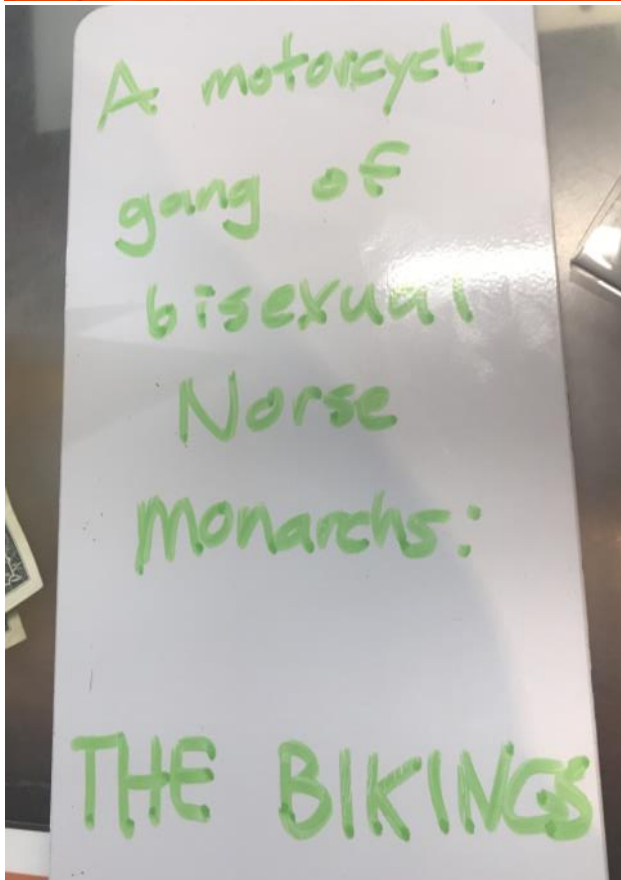 A motorcycle
gang of
bisexual
Norse
Monarchs:
THE BIKINGS